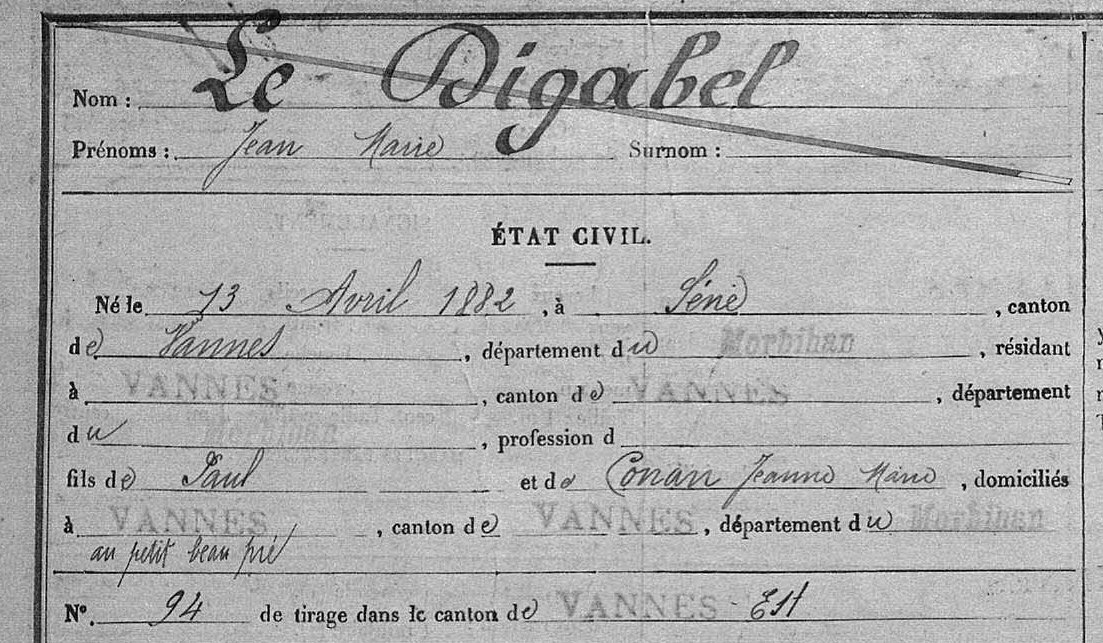 Nom : Le Digabel
Prénoms : Jean Marie Surnom :
ÉTAT CIVIL.
Né le 13 Avril 1882, à Séné, canton
de Vannes, département du Morbihan, résidant
à VANNES, canton de VANNES, département
du Morbihan, profession d
fils de Paul et de Conan Jeanne Marie, domiciliés
à VANNES, canton de VANNES, département du Morbihan
au petit beau pré
N° 94 de tirage dans le canton de VANNES Est